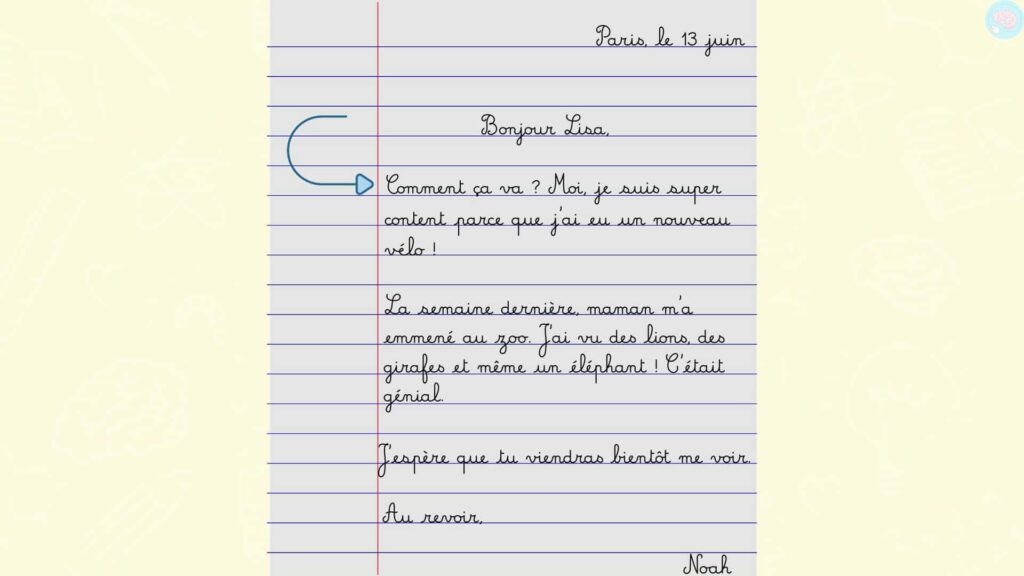 Paris, le 13 juin
Bonjour Lisa,
Comment ça va ? Moi, je suis super
content parce que j'ai eu un nouveau
vélo !
La semaine dernière, maman m'a
emmené au zoo. J'ai vu des lions, des
girafes et même un éléphant ! C'était
génial.
J'espère que tu viendras bientôt me voir.
Au revoir,
Noah